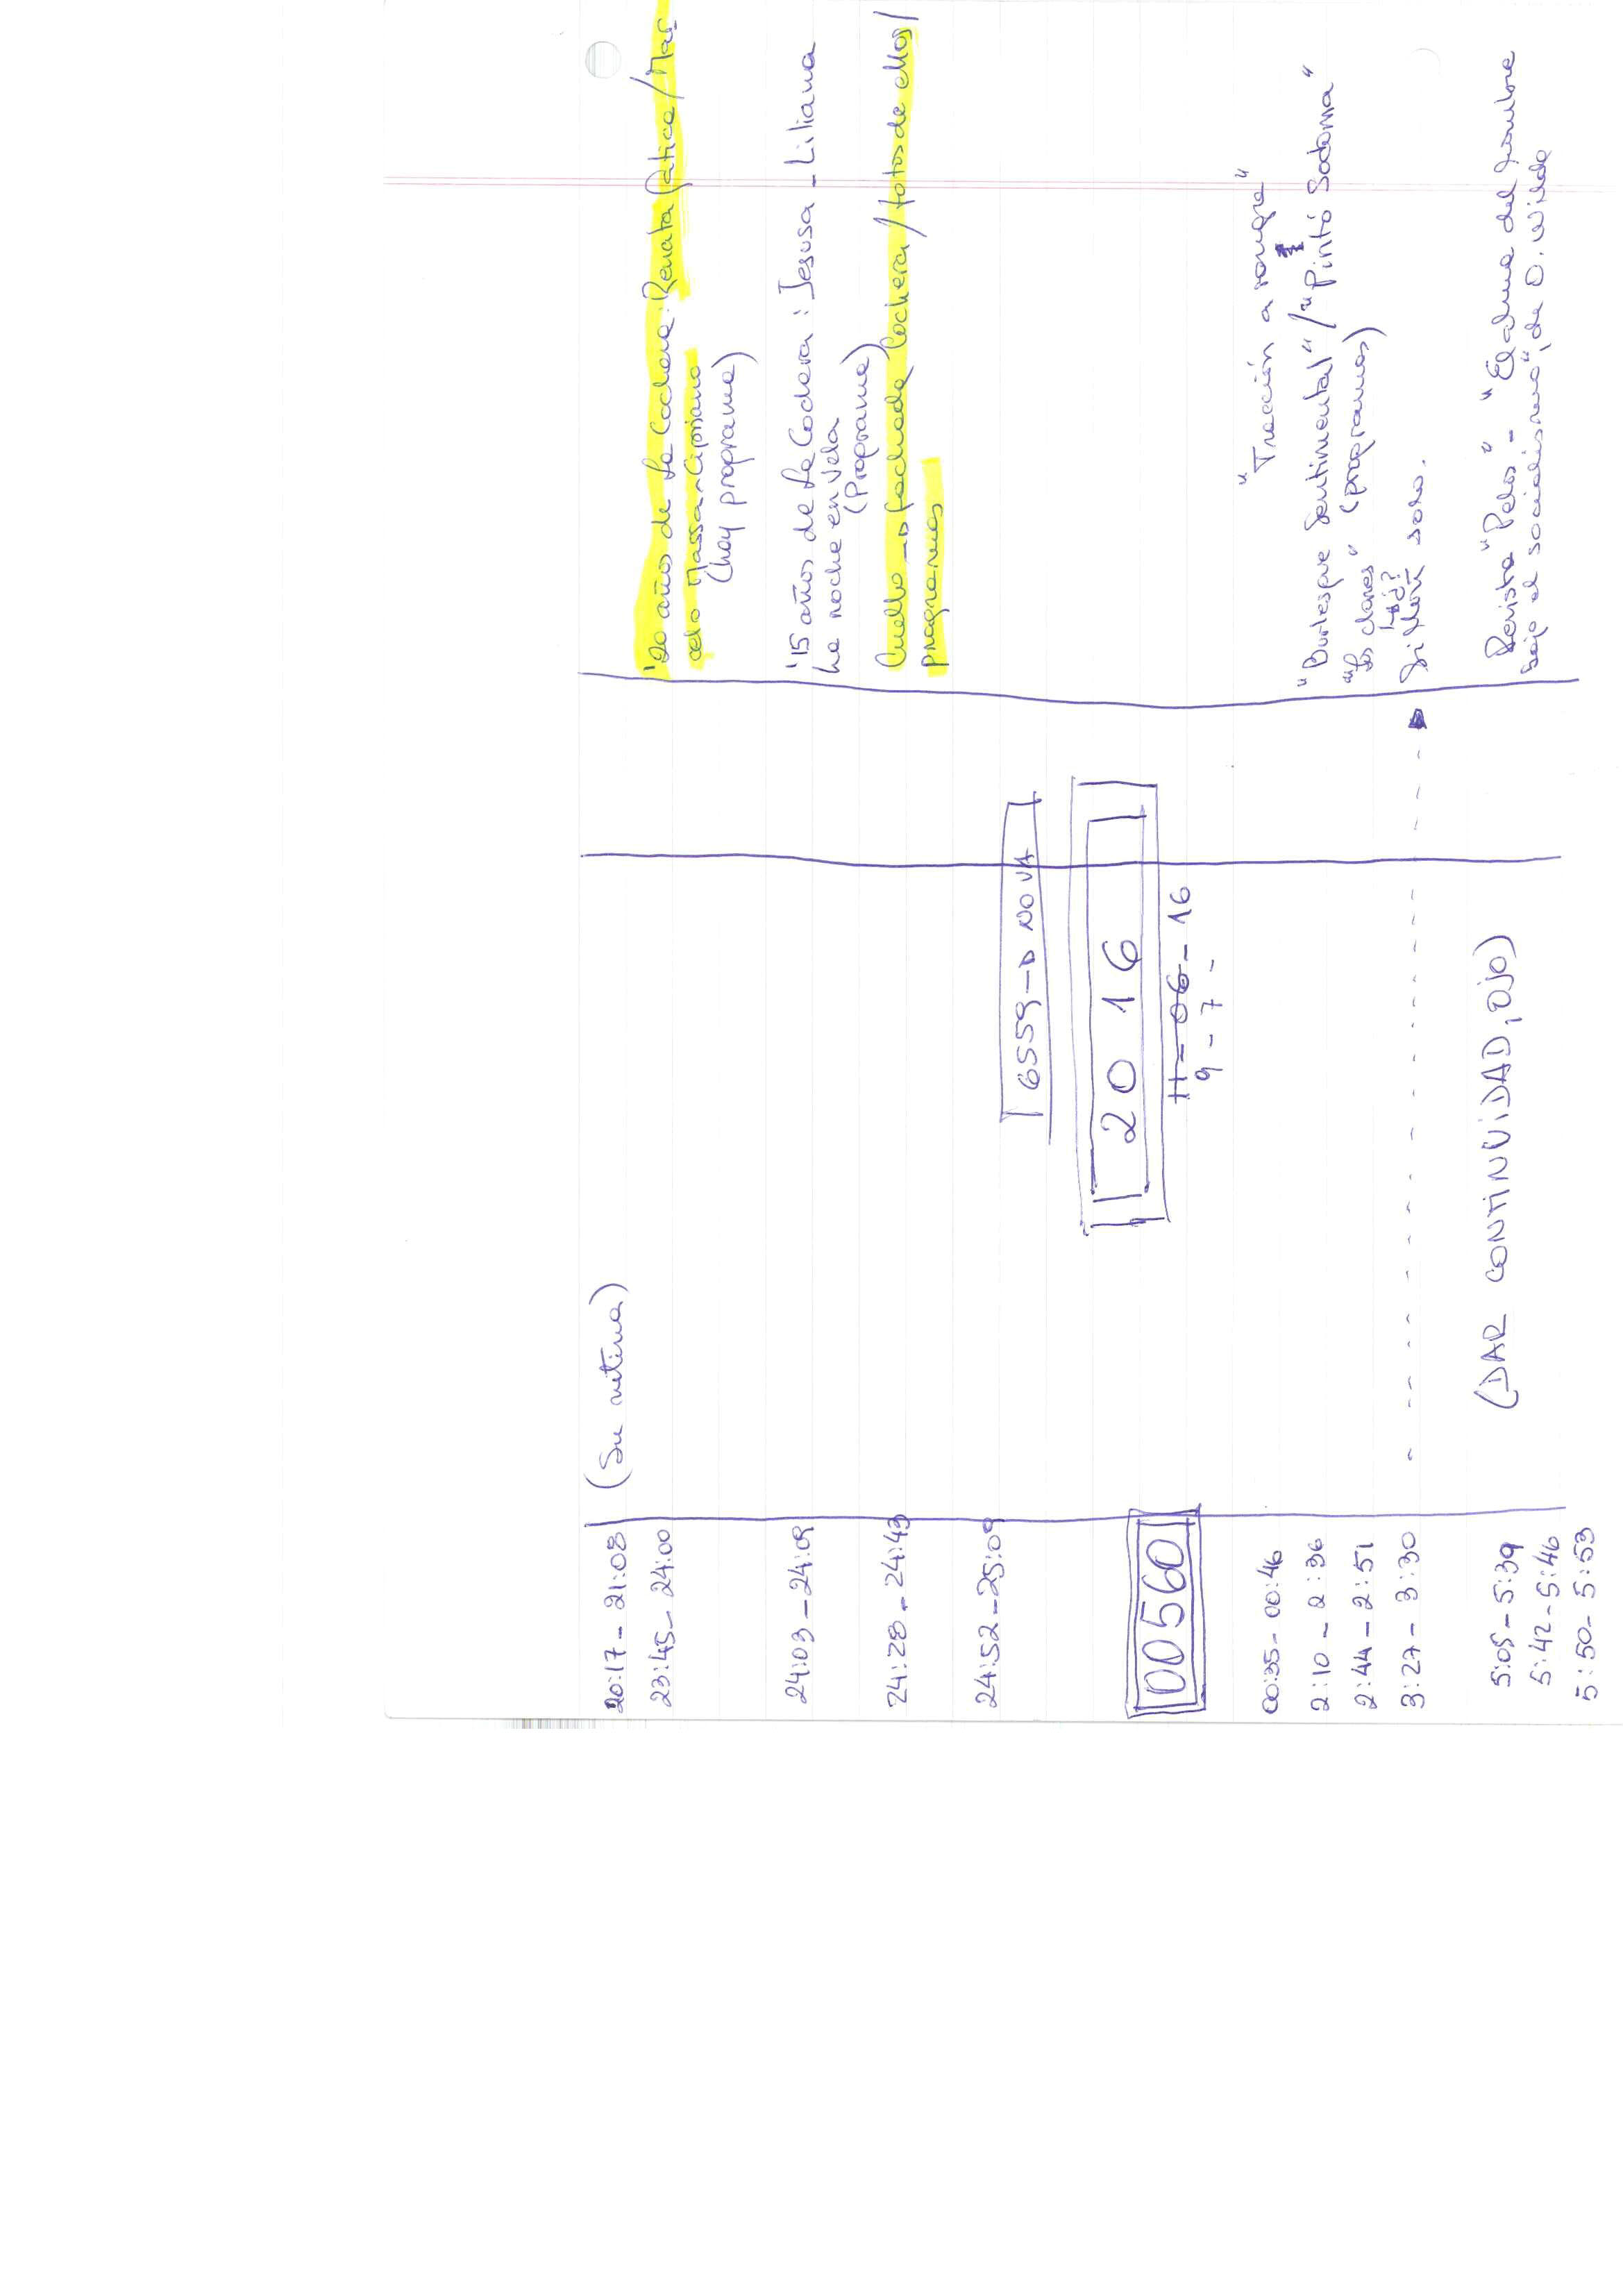 20:17 - 21:08 (Su rutina)
23:45 - 24:00 '20 años de La Cochera: Renata Gatica / Mar
celo Massa - Cipriano
(hay programa)
24:03 - 24:09 '15 años de La Cochera: Jesusa - Liliana
La noche en vela
(Programa)
24:28 - 24:43 Cuello → fachada Cochera / fotos de ellos /
programas
24:52 - 25:09
6559 → NO VA
2016
00560
11 - 06 - 16
9 - 7 -
00:35 - 00:46 "Tracción a sangre"
2:10 - 2:36 "Burlesque Sentimental" / "Pintó Sodoma"
2:44 - 2:51 "Los clanes" (programas)
3:27 - 3:30 solo.
5:05 - 5:39 (DAR CONTINUIDAD, OJO) Revista "Pelos" - "El alma del hombre
5:42 - 5:46 bajo el socialismo", de O. Wilde
5:50 - 5:53